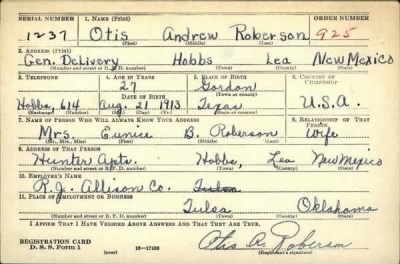 SERIAL NUMBER 1. NAME (Print) ORDER NUMBER
1237 Otis Andrew Roberson 925
(First) (Middle) (Last)
2. ADDRESS (Print)
Gen. Delivery Hobbs Lea New Mexico
(Number and street or R. F. D. number) (Town) (County) (State)
3. TELEPHONE 4. AGE IN YEARS 5. PLACE OF BIRTH 6. COUNTRY OF CITIZENSHIP
27 Gordon
DATE OF BIRTH (Town or county)
Hobbs, 614 Aug. 21 1913 Texas U.S.A.
(Exchange) (Number) (Mo.) (Day) (Yr.) (State or country)
7. NAME OF PERSON WHO WILL ALWAYS KNOW YOUR ADDRESS 8. RELATIONSHIP OF THAT PERSON
Mrs. Eunice B. Roberson Wife
(Mr., Mrs., Miss) (First) (Middle) (Last)
9. ADDRESS OF THAT PERSON
Hunter Apts. Hobbs, Lea New Mexico
(Number and street or R. F. D. number) (Town) (County) (State)
10. EMPLOYER'S NAME
R. J. Allison Co. Tulsa
11. PLACE OF EMPLOYMENT OR BUSINESS
Tulsa Oklahoma
(Number and street or R. F. D. number) (Town) (County) (State)
I AFFIRM THAT I HAVE VERIFIED ABOVE ANSWERS AND THAT THEY ARE TRUE.
REGISTRATION CARD
D. S. S. FORM 1 (over) 16-17105 Otis A. Roberson